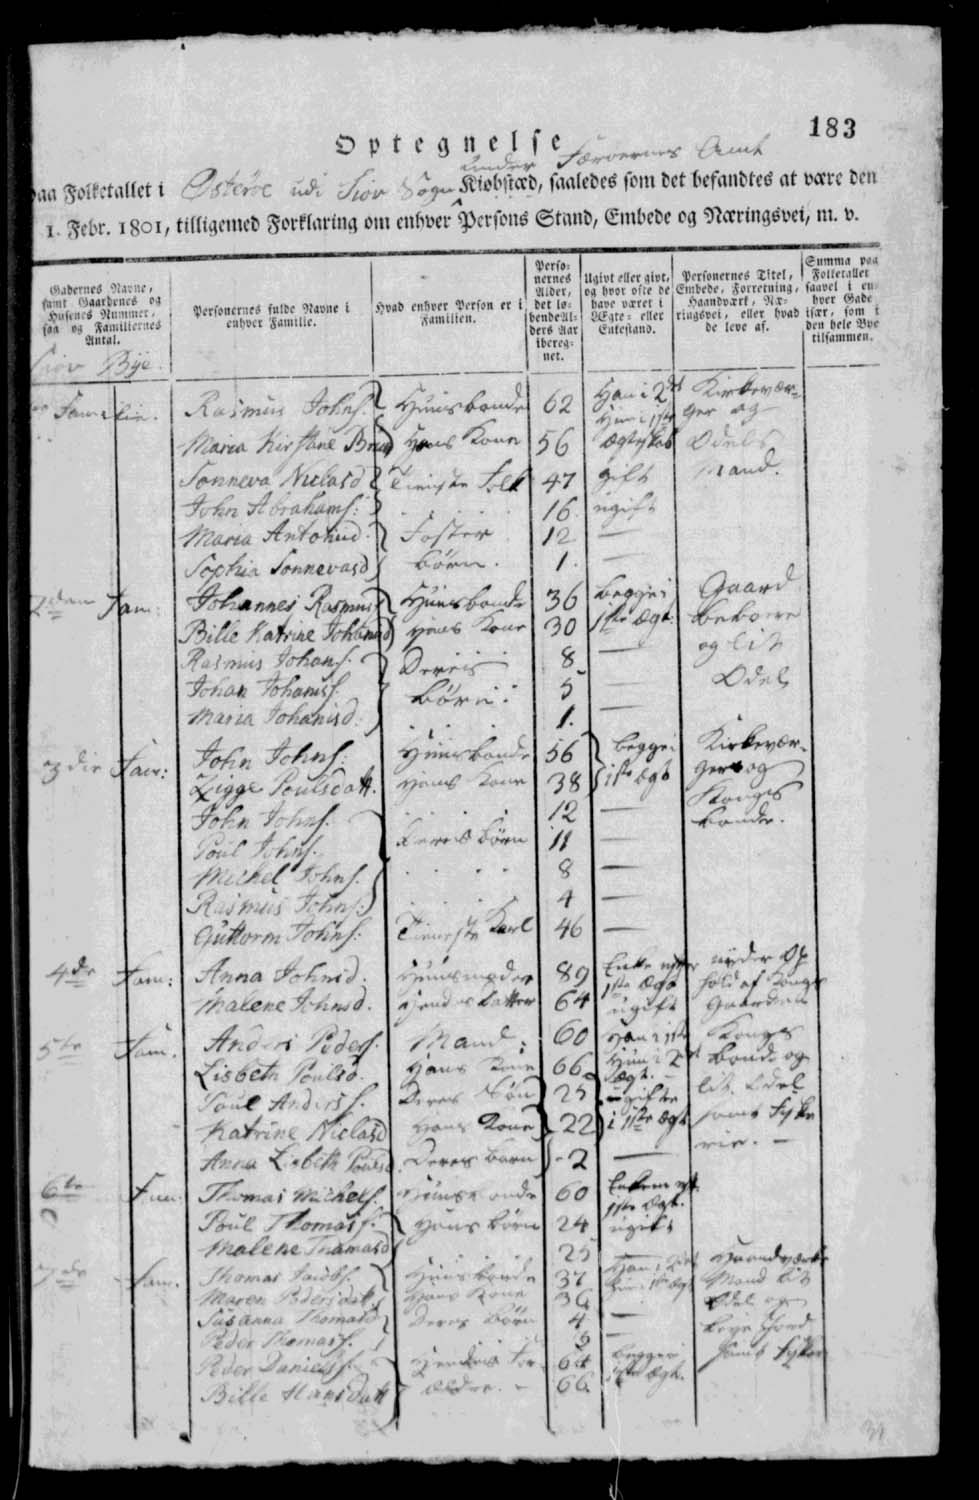 183
Optegnelse
under Færoernes Amt
paa Folketallet i Østeröe udi Siov Sogn Kiøbstæd, saaledes som det befandtes at være den
1. Febr. 1801, tilligemed Forklaring om enhver Persons Stand, Embede og Næringsvei, m. v.
Gadernes Navne, samt Gaardenes og Husenes Nummer, saa og Familiernes Antal.
Personernes fulde Navne i enhver Familie.
Hvad enhver Person er i Familien.
Personernes Alder, det løbende Alders Aar iberegnet.
Ugivt eller givt, og hvor ofte de have været i Ægte- eller Enkestand.
Personernes Titel, Embede, Forretning, Haandværk, Næringsvei, eller hvad de leve af.
Summa paa Folketallet saavel i enhver Gade især, som i den hele Bye tilsammen.
Siov Bye.
Familie. Rasmus Johns. Huusbonde 62 Han i 2det Kirkevær-
Hun i 1ste ger og
Maria Kirstane Hans Kone 56 Ægteskab Odels
Sonneva Niclasd Tieniste Folk 47 gift Mand.
John Abrahams: 16. ugift
Maria Antoniud. Foster 12 —
Sophia Sonnevasd börn. 1. —
2den Fam: Johannes Rasmus Huusbonde 36 begge i Gaard
Bille Katrine Johansd Hans Kone 30 1ste Ægt: beboere
Rasmus Johans. Deres 8 — og lit
Johan Johaniss. börn. 5 — Odel
Maria Johanisd. 1. —
3die Fam: John Johns. Huusbonde 56 begge i Kirkevær-
Zigge Poulsdatt. Hans Kone 38 1ste Ægt ger og
John Johns. 12 — Kongs
Poul Johns. Deres börn 11 — bonde.
Michel Johns. 8 —
Rasmus Johns. 4 —
Guttorm Johns. Tieneste Karl 46 —
4de Fam: Anna Johnsd. Huusmoder 89 Enke nyder Op
1ste Ægt hold af Kongs
Malene Johnsd. Hendes datter 64 ugift Gaarden
5te Fam. Anders Peders. Mand. 60 Han i 1ste Kongs
Lisbeth Poulsd. Hans Kone 66 Hun i 2det bonde og
Ægt. lit Odel
Poul Anders. Deres Sön 25 gifte samt Fyske
Katrine Niclasd Hans Kone 22 i 1ste Ægt rie. —
Anna Lisbeth Poulsd Deres barn 2 —
6te Fam. Thomas Michels. Huusbonde 60
1ste Ægt.
Poul Thomass. Hans börn 24 ugift
Malene Thomasd 25 — Haandværks
7de Fam. Thomas Jacobs. Huusbonde 37 Mand lit
Maren Pedersdatt Hans Kone 36 Odel og
Susanna Thomasd Deres börn 4 —
Peder Thomass. —
Peder Daniels. Hendes For- 64 begge samt Fyske
Bille Hansdatt ældre. 66 1ste Ægt.